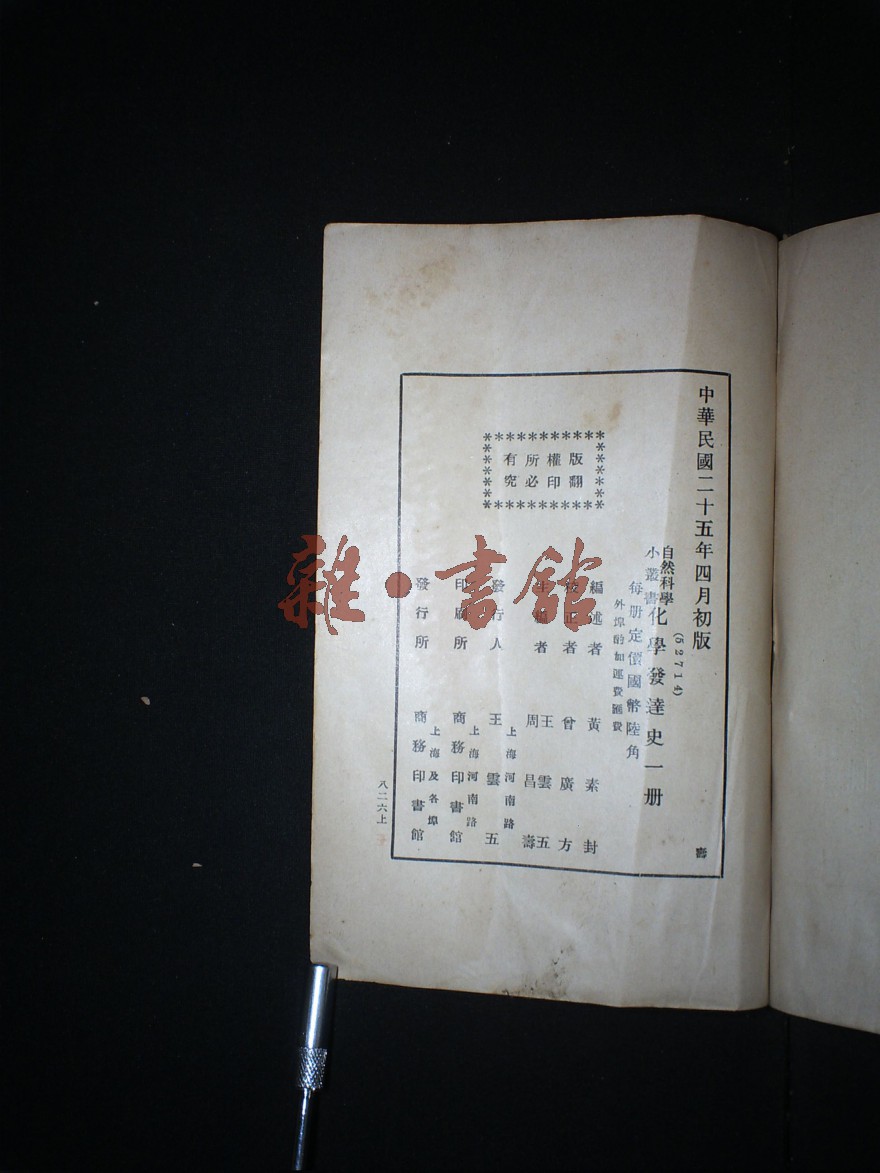 中華民國二十五年四月初版
壽
(52714)
自然科學
小叢書
化學發達史一册
每册定價國幣陸角
外埠酌加運費匯費
版權所有
翻印必究
編述者 黃素封
校正者 曾廣方
主編者 王雲五
周昌壽
上海河南路
發行人 王雲五
上海河南路
印刷所 商務印書館
上海及各埠
發行所 商務印書館
八二六上
雜·書館